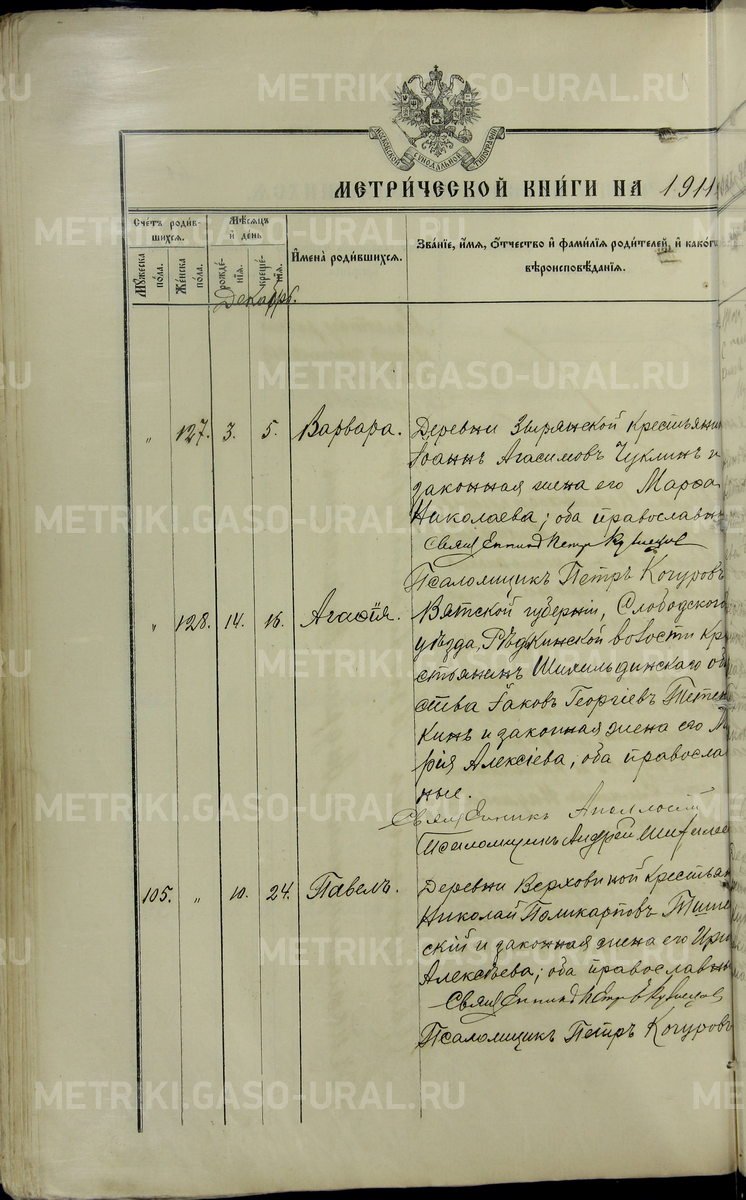 METRIKI.GASO-URAL.RU
МОСКОВСКОЙ СѴНОДАЛЬНОЙ ТИПОГРАФІИ
МЕТРИ́ЧЕСКОЙ КНИ́ГИ НА 1911
Счетъ роди́в-
шихся.
Мѣсяцъ
и҆ де́нь
Мꙋжеска по́ла.
Же́нска по́ла.
рожде́-
нія.
креще́-
нія.
И҆мена̀ роди́вшихся.
Зва́нїе, и҆́мѧ, ѻ҆́тчество и҆ фами́лїѧ роди́телей, и҆ како́гѡ
вѣроисповѣ́данїѧ.
Декабрь.
„ 127. 3. 5. Варвара. Деревни Зырянской крестьянин
Іоаннъ Агасимовъ Чуклинъ и
законная жена его Марѳа
Николаева; оба православн
Священникъ Петръ Кузнецов
Псаломщикъ Петръ Кочуровъ
„ 128. 14. 16. Агаѳія. Вятской губерніи, Слободского
уѣзда, волости кре
стьянинъ об
ства Іаковъ Георгіевъ
кинъ и законная жена его
рія Алексіева; оба православ
ные.
Священникъ Аполлосій
Псаломщикъ Андрей
105. „ 10. 24. Павелъ. Деревни Верховиной крестьян
Николай Поликарповъ
скій и законная жена его Ири
Алексѣева; оба православн
Священникъ Петръ Кузнецов
Псаломщикъ Петръ Кочуровъ